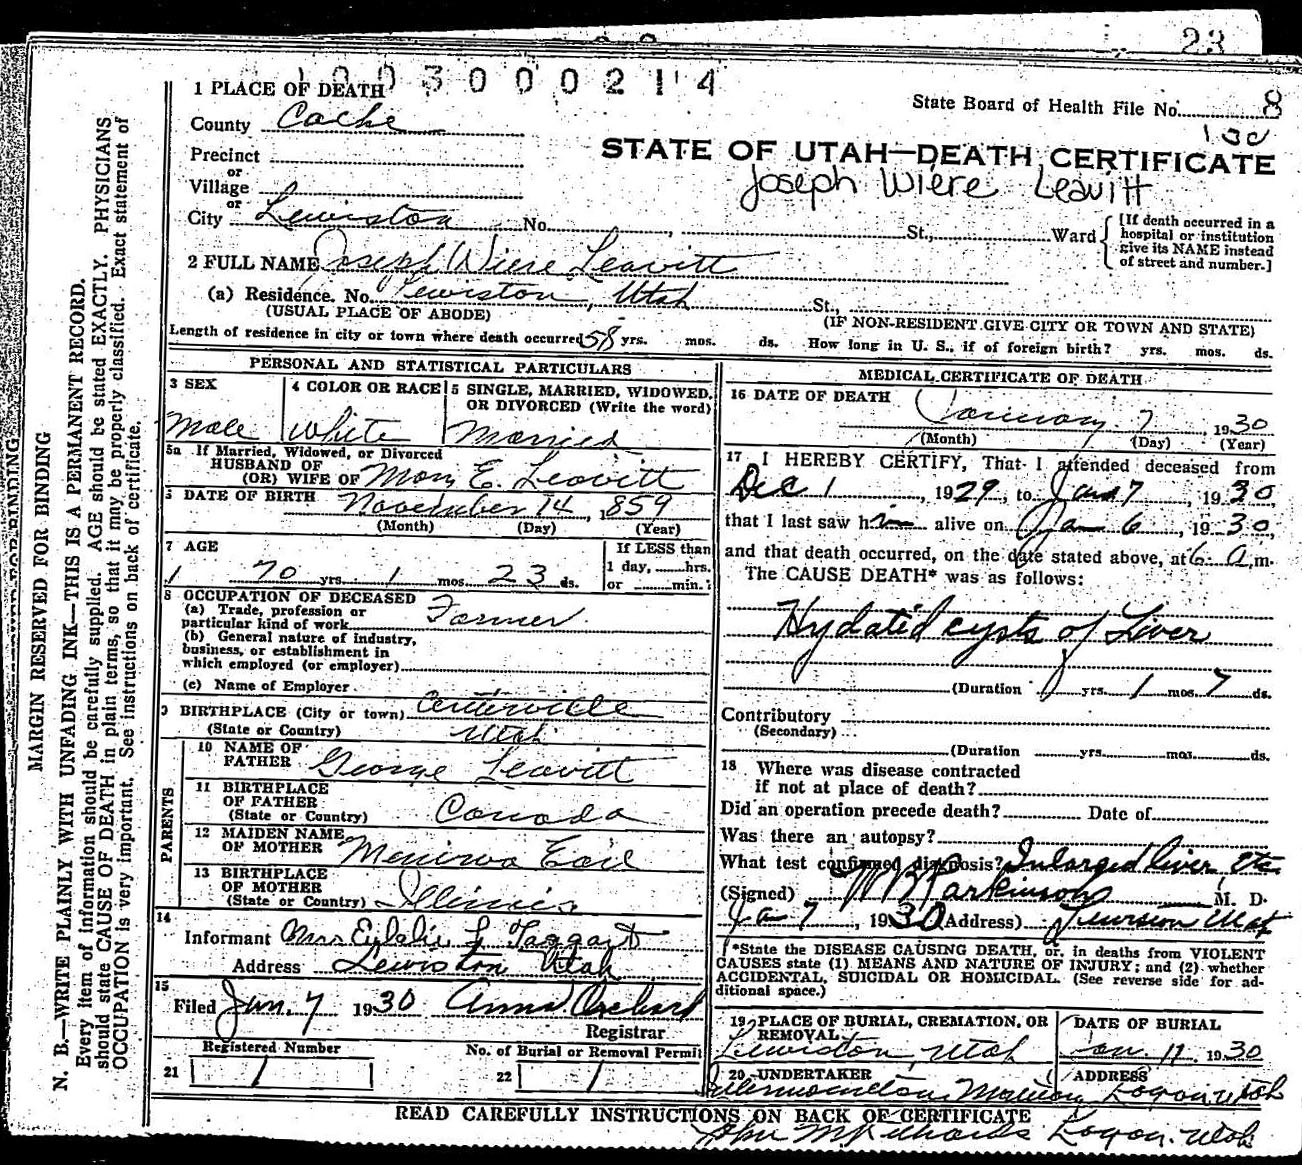 23
1003000214
1 PLACE OF DEATH
State Board of Health File No. 8
County Cache
130
STATE OF UTAH—DEATH CERTIFICATE
Precinct
or
Village
Joseph Wiere Leavitt
or
City Lewiston No. , St., Ward
[If death occurred in a
hospital or institution
give its NAME instead
of street and number.]
2 FULL NAME Joseph Wiere Leavitt
(a) Residence. No. Lewiston, Utah St.,
(USUAL PLACE OF ABODE)
(IF NON-RESIDENT GIVE CITY OR TOWN AND STATE)
Length of residence in city or town where death occurred 58 yrs. mos. ds. How long in U. S., if of foreign birth? yrs. mos. ds.
PERSONAL AND STATISTICAL PARTICULARS
3 SEX
Male
4 COLOR OR RACE
White
5 SINGLE, MARRIED, WIDOWED,
OR DIVORCED (Write the word)
Married
5a If Married, Widowed, or Divorced
HUSBAND OF
(OR) WIFE OF Mary E. Leavitt
DATE OF BIRTH November 14, 1859
(Month) (Day) (Year)
7 AGE
70 yrs. 1 mos. 23 ds.
If LESS than
1 day, hrs.
or min.
8 OCCUPATION OF DECEASED
(a) Trade, profession or
particular kind of work Farmer
(b) General nature of industry,
business, or establishment in
which employed (or employer)
(c) Name of Employer
9 BIRTHPLACE (City or town) Centerville
(State or Country) Utah
PARENTS
10 NAME OF
FATHER George Leavitt
11 BIRTHPLACE
OF FATHER
(State or Country) Canada
12 MAIDEN NAME
OF MOTHER
13 BIRTHPLACE
OF MOTHER
(State or Country) Illinois
14
Informant Mrs Eulalie L Taggart
Address Lewiston Utah
15
Filed Jan. 7 1930 Anna Orchard
Registrar
Registered Number
21 1
No. of Burial or Removal Permit
22 1
MEDICAL CERTIFICATE OF DEATH
16 DATE OF DEATH
January 7, 1930
(Month) (Day) (Year)
17 I HEREBY CERTIFY, That I attended deceased from
Dec 1, 1929, to Jan 7 1930
that I last saw him alive on Jan 6, 1930,
and that death occurred, on the date stated above, at 6 a m.
The CAUSE DEATH* was as follows:
Hydatid cysts of Liver
(Duration yrs. 1 mos. 7 ds.
Contributory
(Secondary)
(Duration yrs. mos. ds.
18 Where was disease contracted
if not at place of death?
Did an operation precede death? Date of
Was there an autopsy?
What test confirmed diagnosis? Inlarged liver, etc
(Signed) W B Parkinson M. D.
Jan 7, 1930 (Address) Lewiston Utah
*State the DISEASE CAUSING DEATH, or, in deaths from VIOLENT
CAUSES state (1) MEANS AND NATURE OF INJURY; and (2) whether
ACCIDENTAL, SUICIDAL OR HOMICIDAL. (See reverse side for ad-
ditional space.)
19 PLACE OF BURIAL, CREMATION, OR
REMOVAL
Lewiston, Utah
DATE OF BURIAL
Jan. 11, 1930
20 UNDERTAKER
Intermountain
ADDRESS
Logan Utah
READ CAREFULLY INSTRUCTIONS ON BACK OF CERTIFICATE
John Logan. Utah
MARGIN RESERVED FOR BINDING
N. B.—WRITE PLAINLY WITH UNFADING INK—THIS IS A PERMANENT RECORD.
Every item of information should be carefully supplied. AGE should be stated EXACTLY. PHYSICIANS
should state CAUSE OF DEATH in plain terms, so that it may be properly classified. Exact statement of
OCCUPATION is very important. See instructions on back of certificate.